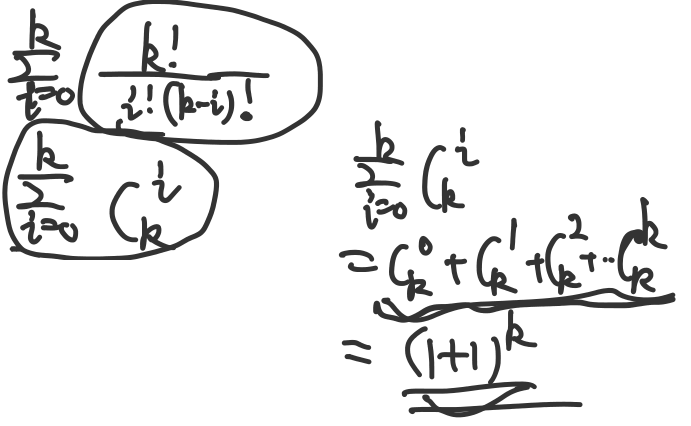 $\sum_{i=0}^{k} \frac{k!}{i!(k-i)!}$
$\sum_{i=0}^{k} C_k^i$
$\sum_{i=0}^{k} C_k^i$
$= C_k^0 + C_k^1 + C_k^2 + \cdot\cdot C_k^k$
$= (1+1)^k$